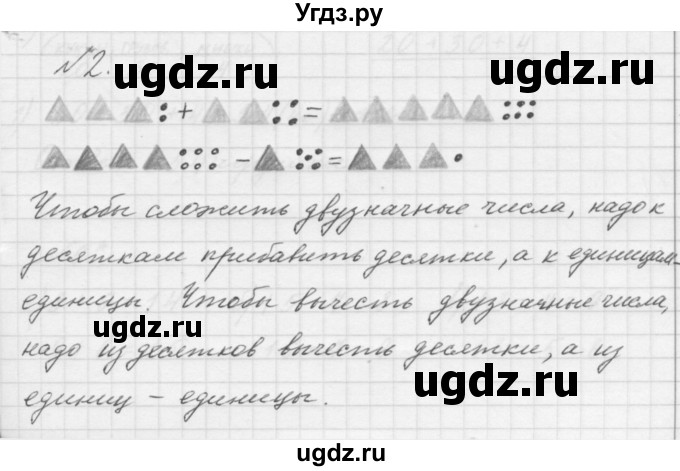 Угдз.ру
№2.
ugdz.ru ugdz.ru
+ =
- =
Чтобы сложить двузначные числа, надо к
десяткам прибавить десятки, а к единицам-
единицы. Чтобы вычесть двузначные числа,
ugdz.ru
надо из десятков вычесть десятки, а из
ugdz.ru
единиц - единицы.
ugdz.ru